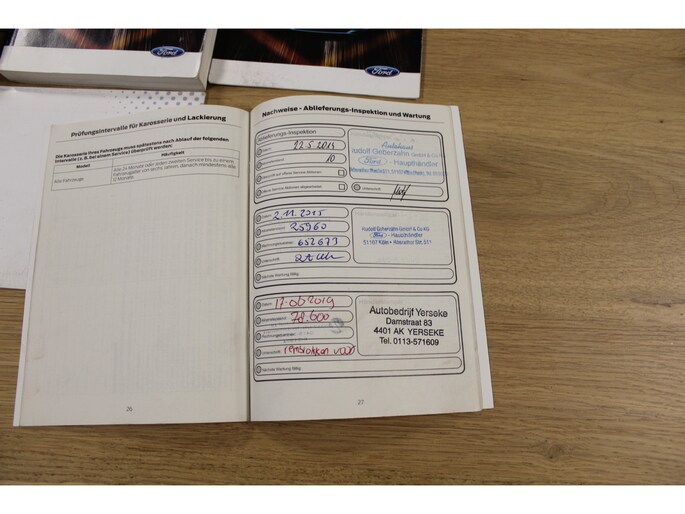 Ford
Ford
Prüfungsintervalle für Karosserie und Lackierung
Die Karosserie Ihres Fahrzeugs muss spätestens nach Ablauf der folgenden
Intervalle (z. B. bei einem Service) überprüft werden:
Modell
Häufigkeit
Alle Fahrzeuge
Alle 24 Monate oder jeden zweiten Service bis zu einem
Fahrzeugalter von sechs Jahren, danach mindestens alle
12 Monate.
26
Nachweise - Ablieferungs-Inspektion und Wartung
Ablieferungs-Inspektion
Datum
22.5.2015
10
Autohaus
Rudolf Geberzahn GmbH & Co KG
Ford - Haupthändler
Unterschrift
Datum
2.11.2015
Kilometerstand
25960
Rechnungsnummer
652673
Unterschrift
Nächste Wartung fällig
Rudolf Geberzahn GmbH & Co KG
Ford - Haupthändler
51107 Köln
Datum
17-06 2019
Kilometerstand
78.600
Rechnungsnummer
Unterschrift
remblokken voor
Nächste Wartung fällig
Autobedrijf Yerseke
Damstraat 83
4401 AK YERSEKE
Tel. 0113-571609
27